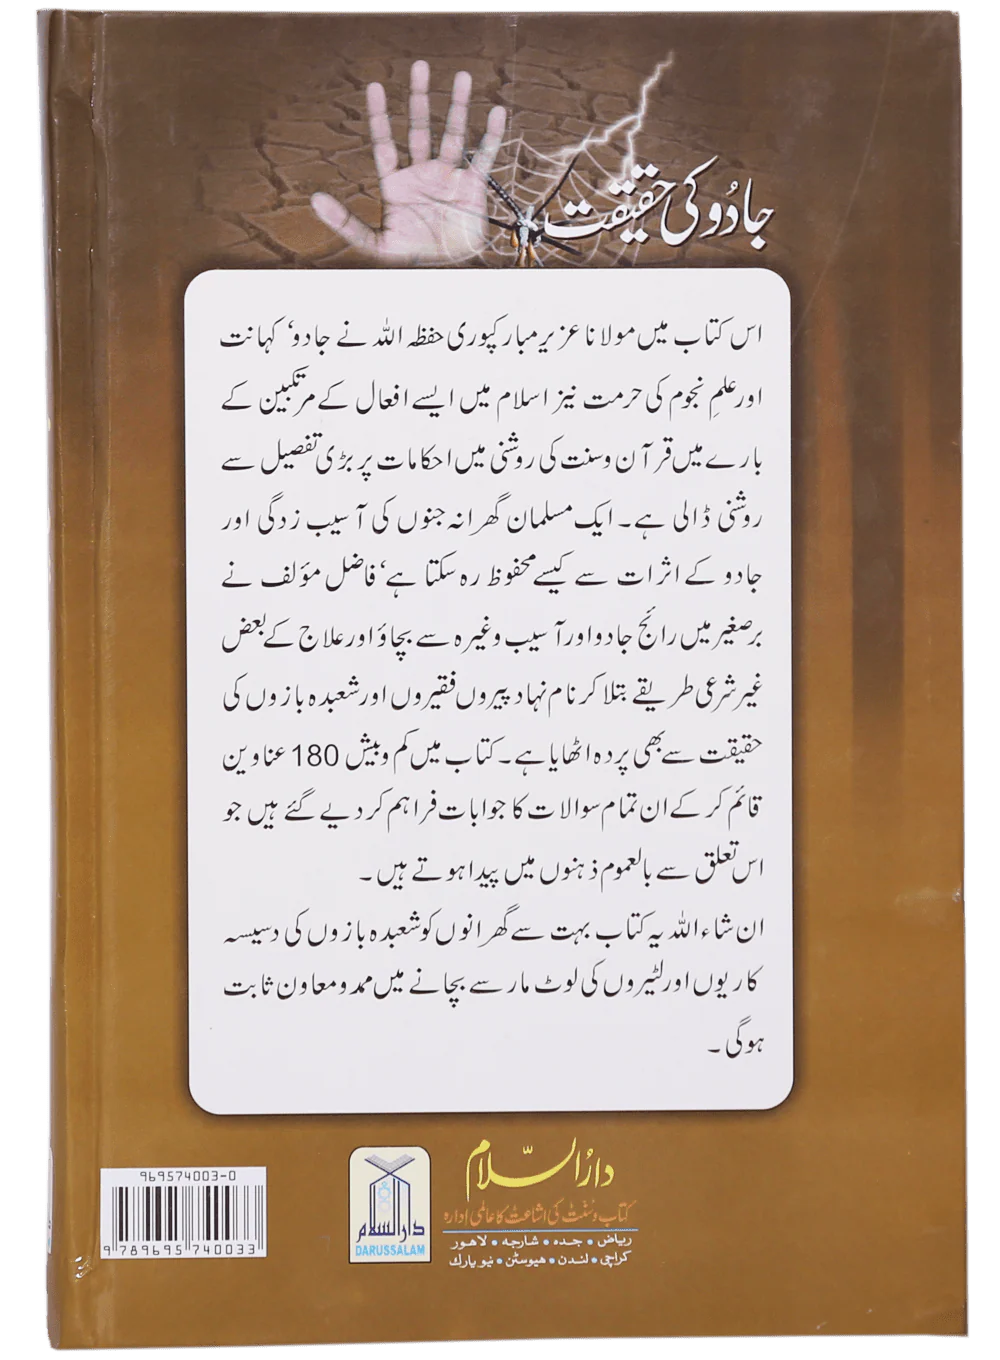 جادُو کی حقیقت
اس کتاب میں مولانا عزیر مبارکپوری حفظہ اللہ نے جادو، کہانت
اور علمِ نجوم کی حرمت نیز اسلام میں ایسے افعال کے مرتکبین کے
بارے میں قرآن وسنت کی روشنی میں احکامات پر بڑی تفصیل سے
روشنی ڈالی ہے۔ ایک مسلمان گھرانہ جنوں کی آسیب زدگی اور
جادو کے اثرات سے کیسے محفوظ رہ سکتا ہے، فاضل مؤلف نے
برصغیر میں رائج جادو اور آسیب وغیرہ سے بچاؤ اور علاج کے بعض
غیر شرعی طریقے بتلا کر نام نہاد پیروں فقیروں اور شعبدہ بازوں کی
حقیقت سے بھی پردہ اٹھایا ہے۔ کتاب میں کم وبیش 180 عناوین
قائم کر کے ان تمام سوالات کا جوابات فراہم کر دیے گئے ہیں جو
اس تعلق سے بالعموم ذہنوں میں پیدا ہوتے ہیں۔
ان شاء اللہ یہ کتاب بہت سے گھرانوں کو شعبدہ بازوں کی دسیسہ
کاریوں اور لٹیروں کی لوٹ مار سے بچانے میں ممد ومعاون ثابت
ہوگی۔
دارُالسّلام
کتاب و سُنّت کی اشاعت کا عالمی ادارہ
ریاض • جدہ • شارجہ • لاهور
کراچی • لندن • هیوسٹن • نیو یارک
دارالسلام
DARUSSALAM
969574003-0
9 789695 740033